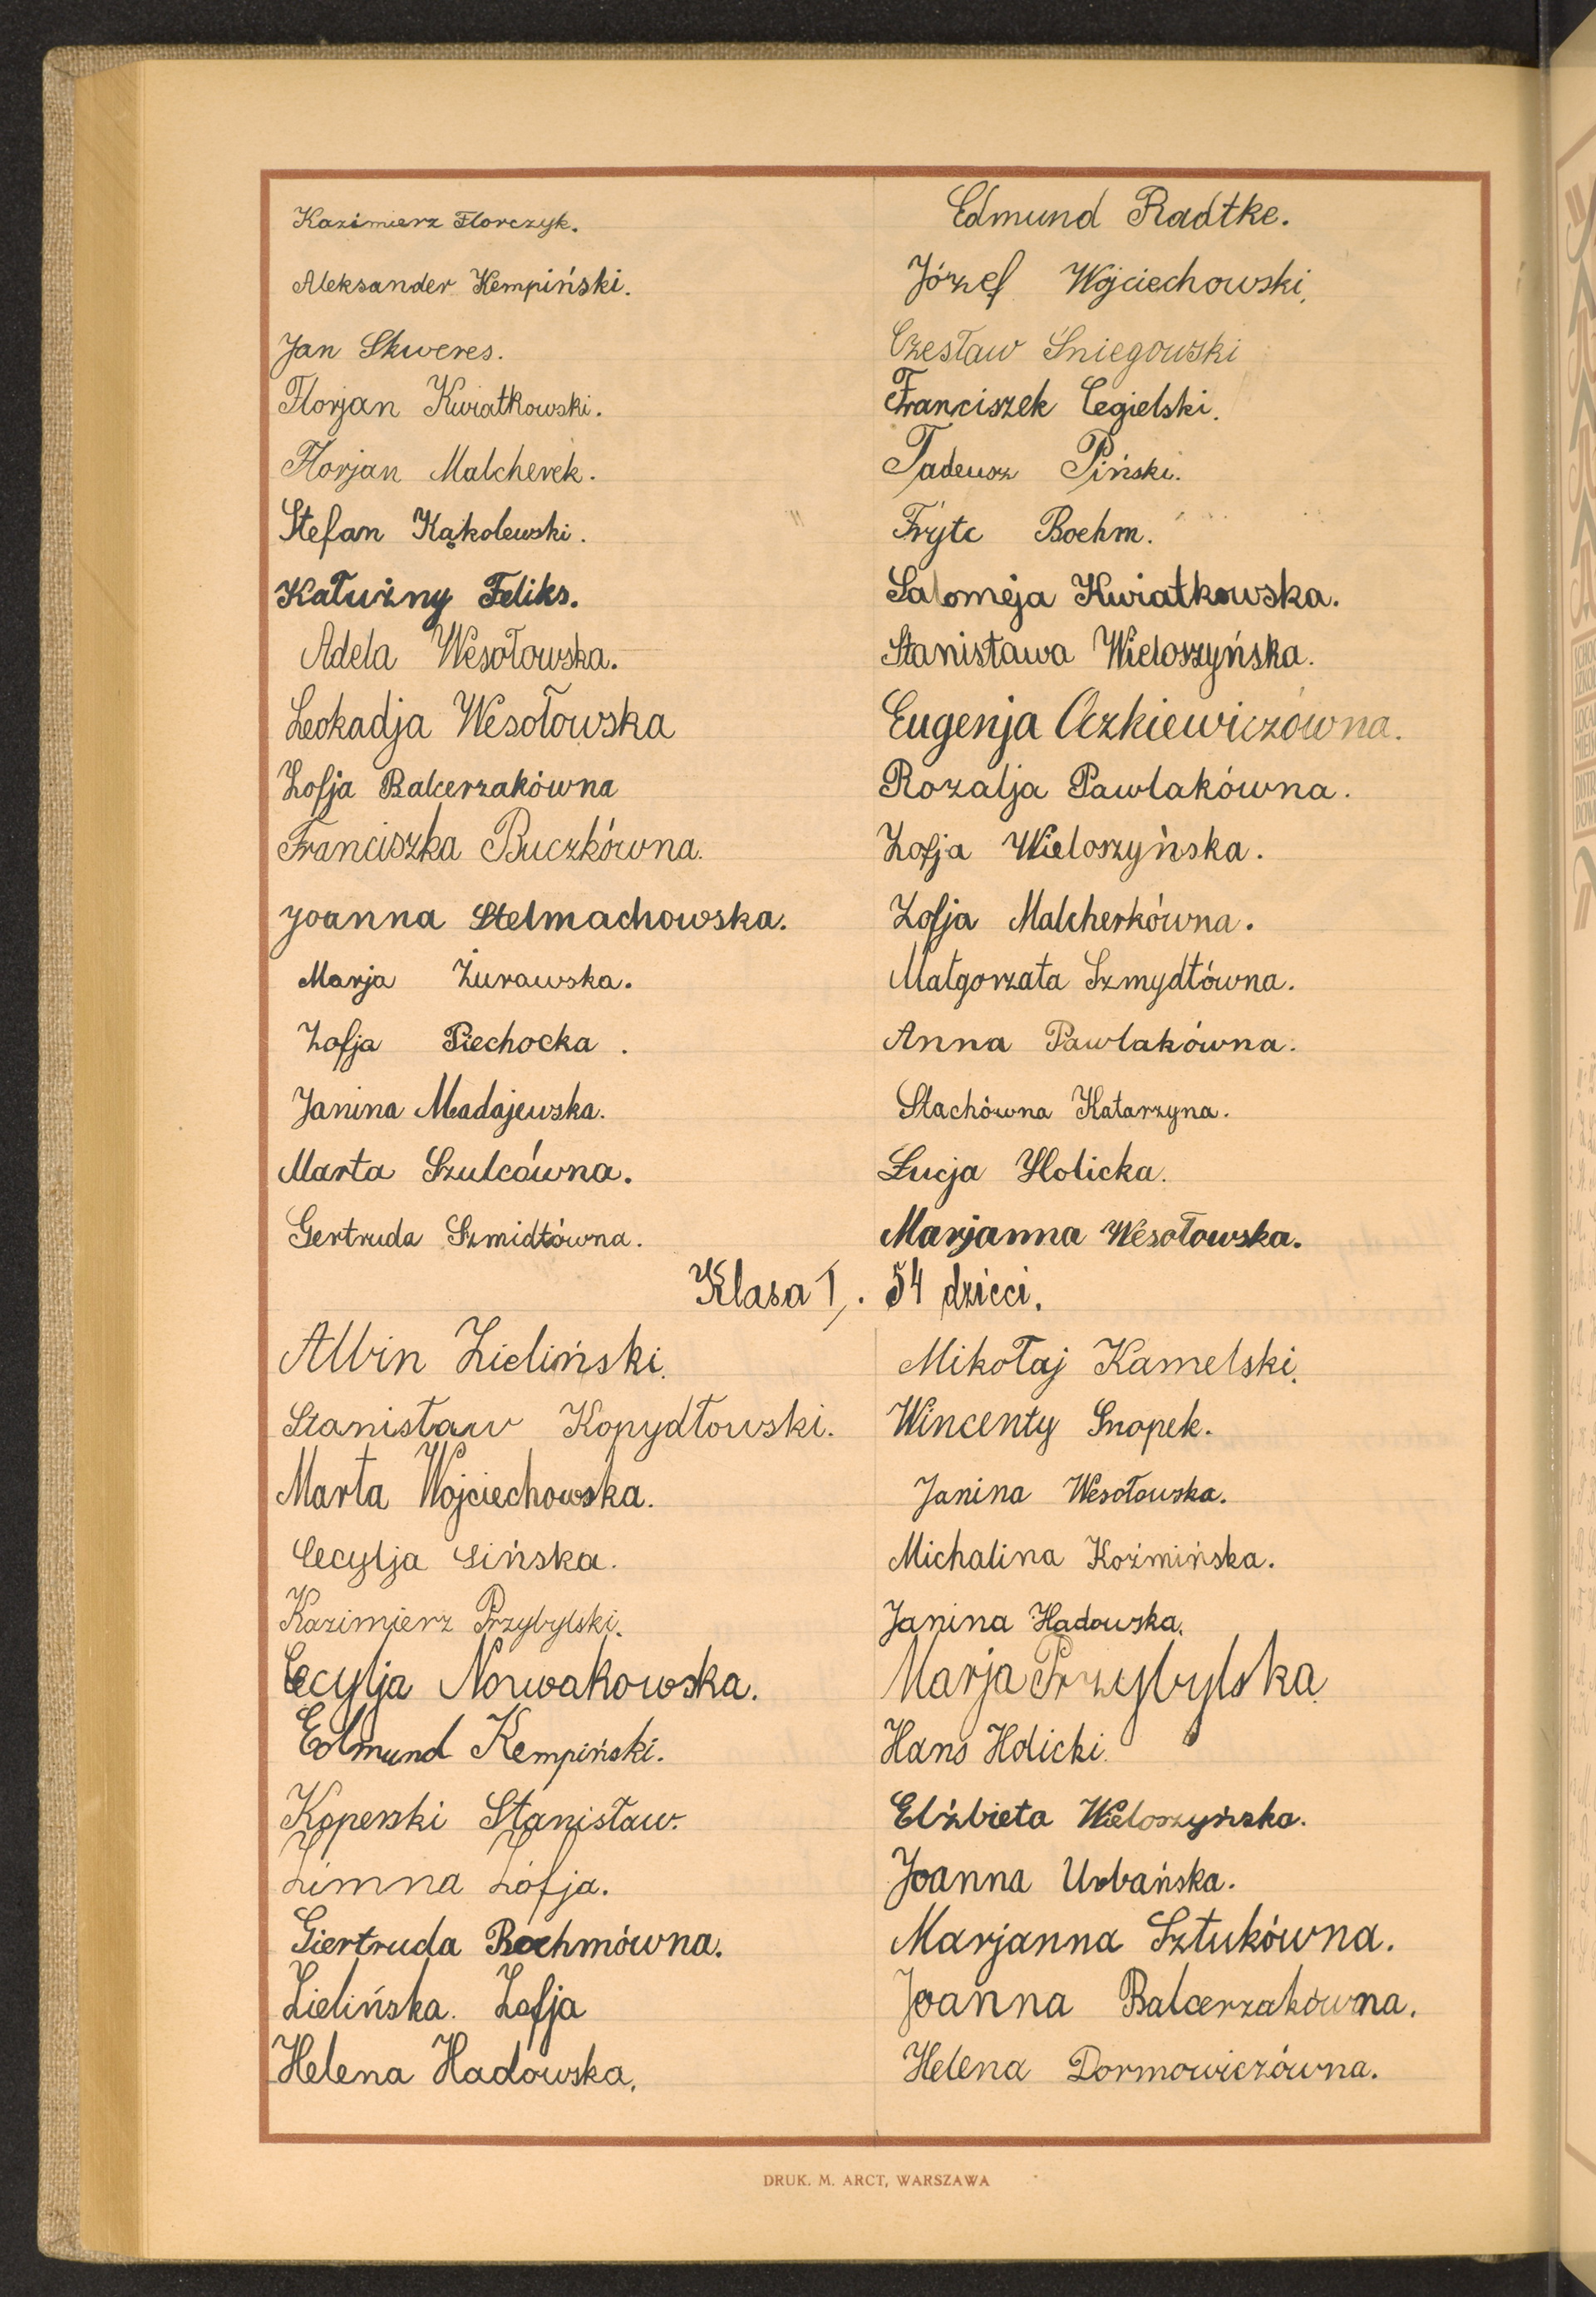 Kazimierz Florczyk.
Aleksander Kempiński.
Jan Skweres.
Florjan Kwiatkowski.
Florjan Malcherek.
Stefan Kąkolewski.
Kałużny Feliks.
Adela Wesołowska.
Leokadja Wesołowska
Zofja Balcerzakówna
Franciszka Buczkówna.
Joanna Stelmachowska.
Marja Żurawska.
Zofja Piechocka.
Janina Madajewska.
Marta Szulcówna.
Gertruda Szmidtówna.
Edmund Radtke.
Józef Wojciechowski.
Czesław Śniegowski
Franciszek Cegielski.
Tadeusz Piński.
Frytc Boehm.
Salomeja Kwiatkowska.
Stanisława Wieloszyńska.
Eugenja Oczkiewiczówna.
Rozalja Pawlakówna.
Zofja Wieloszyńska.
Zofja Malcherkówna.
Małgorzata Szmydtówna.
Anna Pawlakówna.
Stachówna Katarzyna.
Łucja Holicka.
Marjanna Wesołowska.
Klasa I. 54 dzieci.
Albin Zieliński.
Stanisław Kopydłowski.
Marta Wojciechowska.
Cecylja Lińska.
Kazimierz Przybylski.
Cecylja Nowakowska.
Edmund Kempiński.
Koperski Stanisław.
Zimna Zofja.
Giertruda Boehmówna.
Zielińska. Zofja
Helena Hadowska.
Mikołaj Kamelski.
Wincenty Snopek.
Janina Wesołowska.
Michalina Koźmińska.
Janina Hadowska.
Marja Przybylska
Hans Holicki.
Elżbieta Wieloszyńska.
Joanna Urbańska.
Marjanna Sztukówna.
Joanna Balcerzakówna.
Helena Dormowiczówna.
DRUK. M. ARCT, WARSZAWA